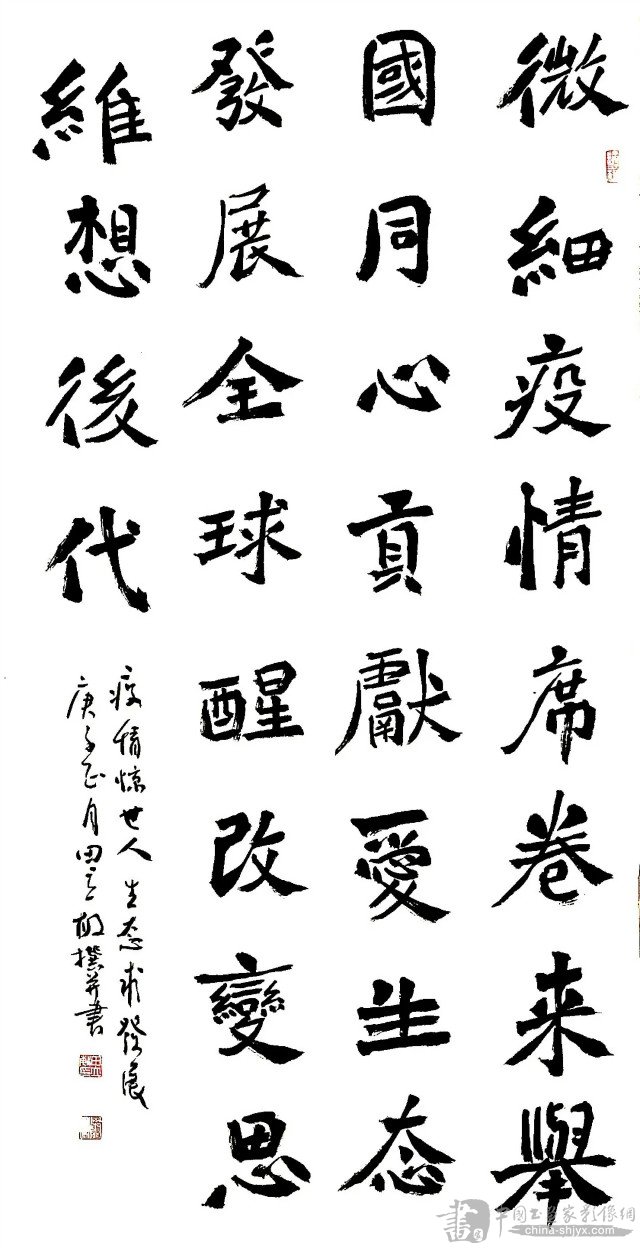 微細疫情席卷来舉
國同心貢獻愛生态
發展全球醒改變思
維想後代
疫情惊世人生态求發展
庚子正月田立敏撰并書
書 中國书法家影像網
china-shjyx.com